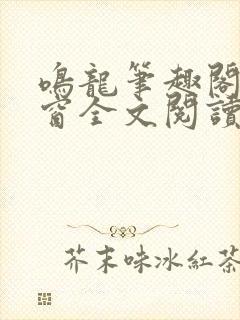 鳴龍筆趣閣
窗全文閱讀
芥末味冰紅茶